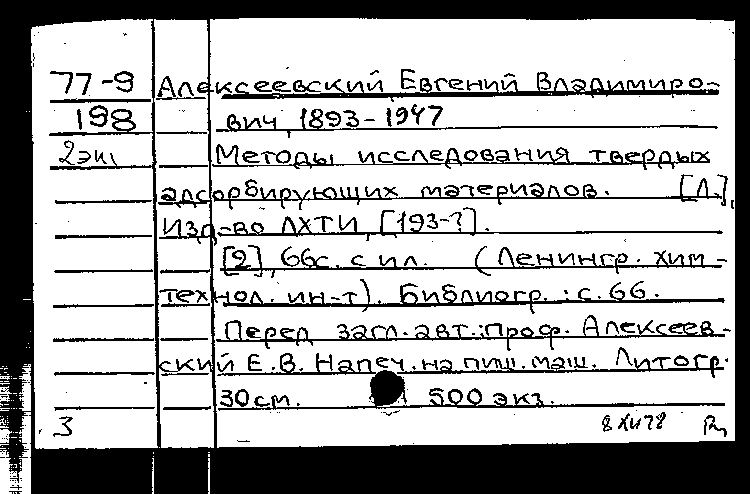 77-9 Алексеевский Евгений Владимиро-
198 вич, 1893-1947
2экз Методы исследования твердых
адсорбирующих материалов. [Л.],
Изд-во ЛХТИ, [193-?].
[2], 66с. с ил. (Ленингр. хим-
технол. ин-т). Библиогр.: с. 66.
Перед загл. авт.: проф. Алексеев-
ский Е.В. Напеч. на пиш. маш. Литогр.
30см. 500 экз.
3 8 XII 78